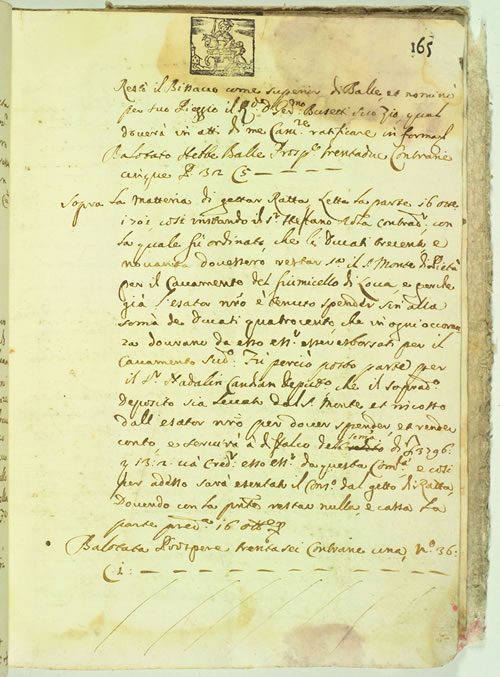 165
Restò il Bissacco come superior di Balle et nominò
per suo Pieggio il Ferd.no Busetti suo Zio, qual
doverà in atti di me Canc.re ratificare in forma
Balotato Hebbe Balle Prosp.e trentadue Contrarie
cinque P. 32 C 5
Sopra la matteria di gettar Ratta, Letta la parte 16 ott.e
1701, così instando il s.r Steffano contrad.r, con
la quale fù ordinato, che li Ducati trecento e
novanta dovessero restar s.a il S. Monte di Pietà
per il Cavamento del fiumicello di e perche
già l'esator nr̃o è tenuto spender sin alla
soma de Ducati quatrocento, che in ogni occoren
za dovrano da esso esser esborsati per il
Cavamento sud.o Fù perciò posto parte per
il S.r Nadalin Candian deputto, che il soprad.o
deposito sia Levato dal S. Monte et riscosso
dall'esator nr̃o per dover spender, et render
conto, e servirà à difalco di £ 3796:
13:2 và Cred.r esso da questa Com.tà e così
per adesso sarà esentati il Com. dal getto di Ratta,
Dovendo con la pñte restar nulla, e cassa la
parte pred.a 16 ott.e
Balotata Prospere trenta sei Contrarie una, N.o 36:
C 1: